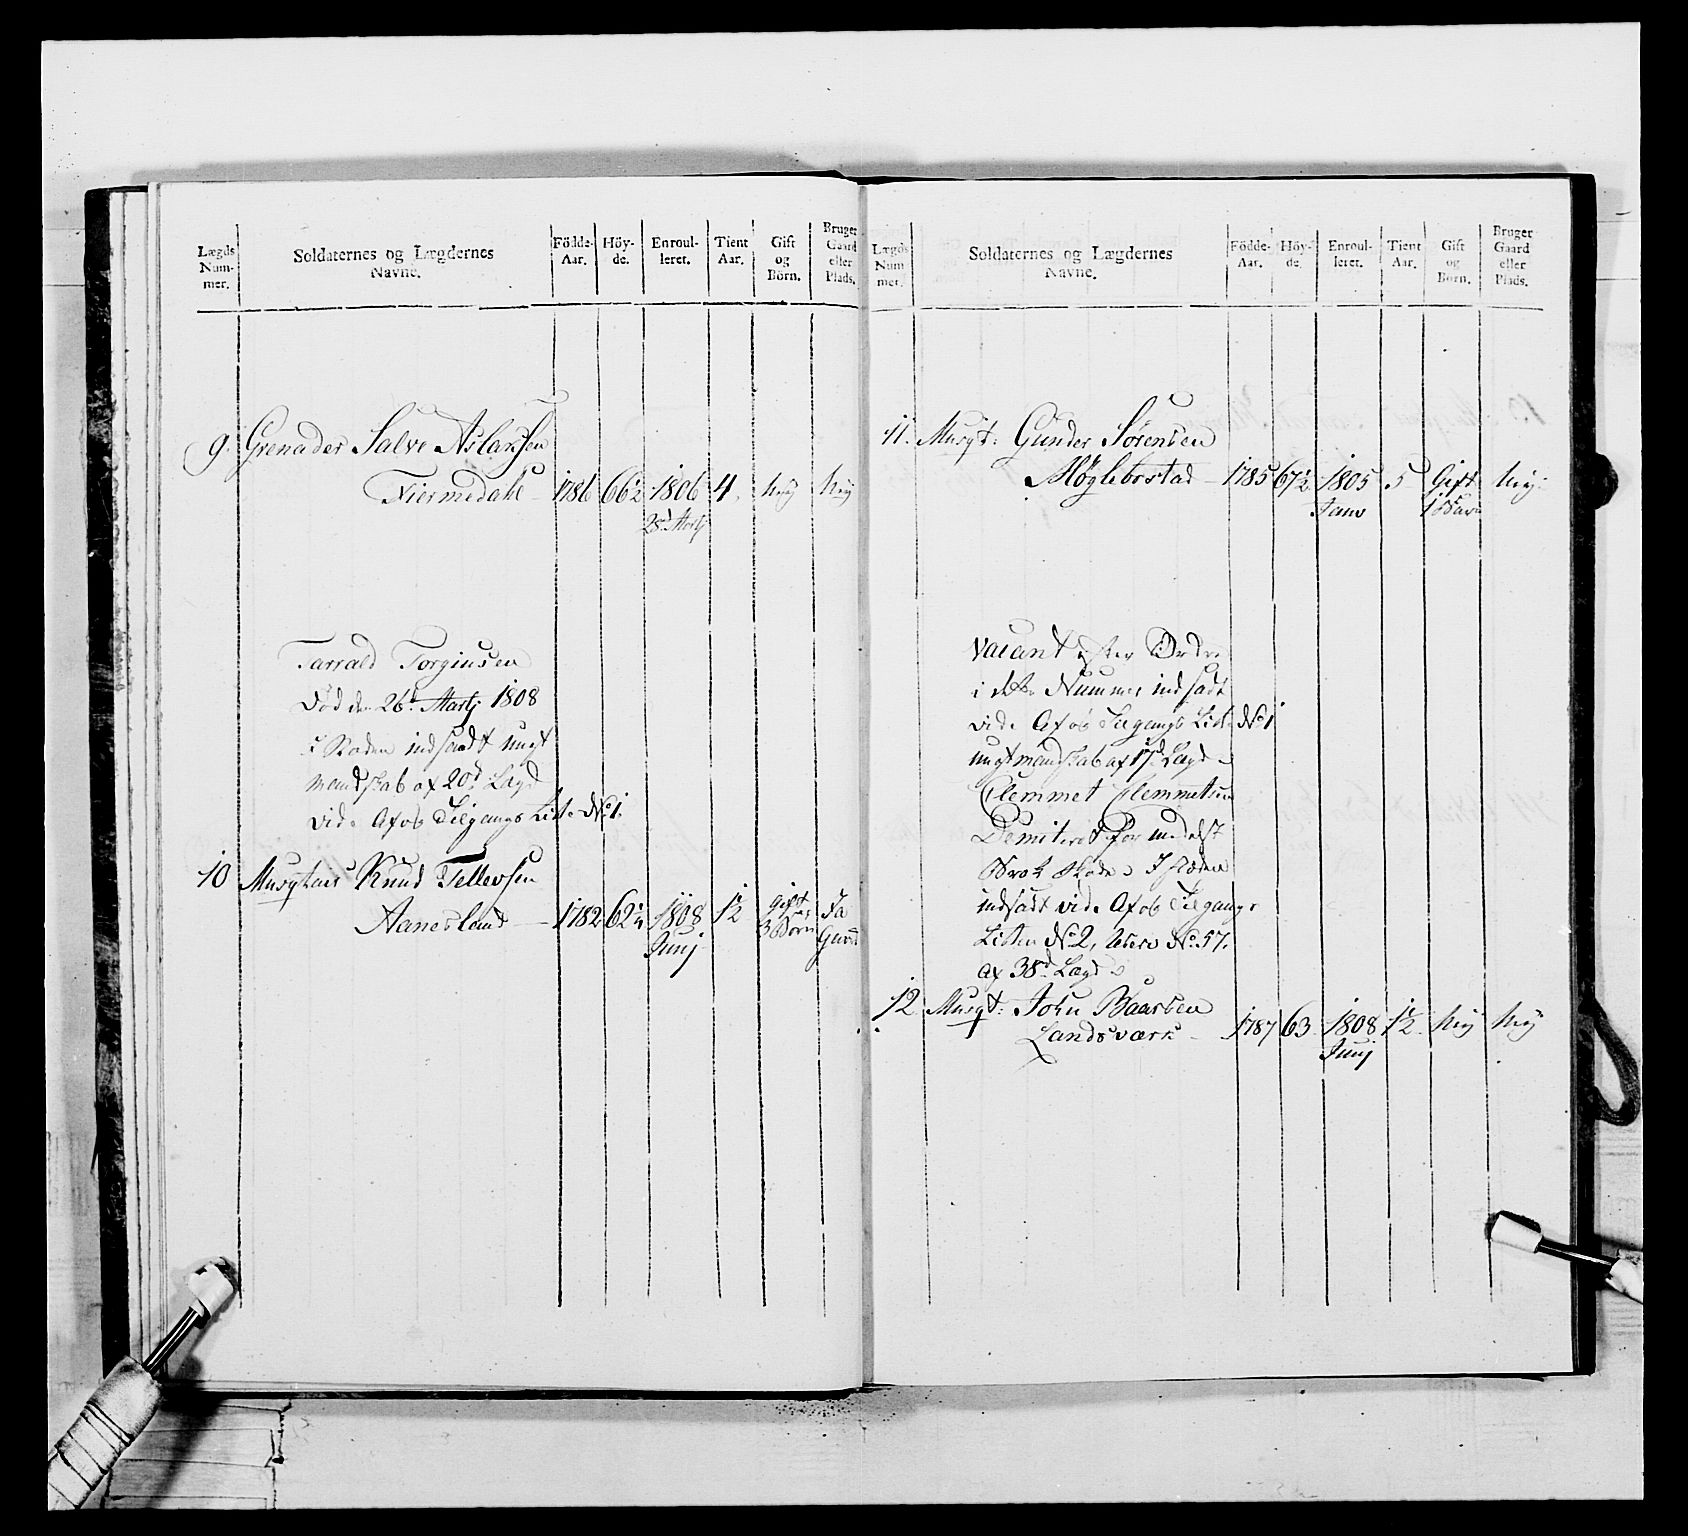 Lægds Num- mer.
Soldaternes og Lægdernes Navne.
Födde- Aar.
Höy- de.
Enroul- leret.
Tient Aar.
Gift og Börn.
Bruger Gaard eller Plads.
9. Grenader Salve Aslaksen
Niermedahl 1786 66½ 1806 4. Nei Nei
28d Martj
Tarrald Torginsen
død den 26d Martj 1808
i Steden indsadt ungt
mandskab af 20d Lægd
vide Af og Tilgangs Liste No 1.
10 Musqtair Knud Tellevsen
Aanesland 1782 62¼ 1808 1½ gift 3 Börn Ja Gaard
Junj
Lægds Num- mer.
Soldaternes og Lægdernes Navne.
Födde- Aar.
Höy- de.
Enroul- leret.
Tient Aar.
Gift og Börn.
Bruger Gaard eller Plads.
11. Musqt: Gunder Sörensen
Høglebostad 1785 67½ 1805 5 Gift Nej
Janv 1 Barn
Vacant efter Ordre
i dette Nummer indsadt
vide Af og Tilgangs Liste No 1
ungt mandskab af 17d Lægd
Clemmet Clemmetsen
Demiteret formedelst
Brok Skade i Steden
indsadt vide Af og Tilgangs
Listen No 2, No 57.
af 38d Lægd
12 Musqt: John Baarsen
Landsværk 1787 63 1808 1½ Nej Nej
Junj